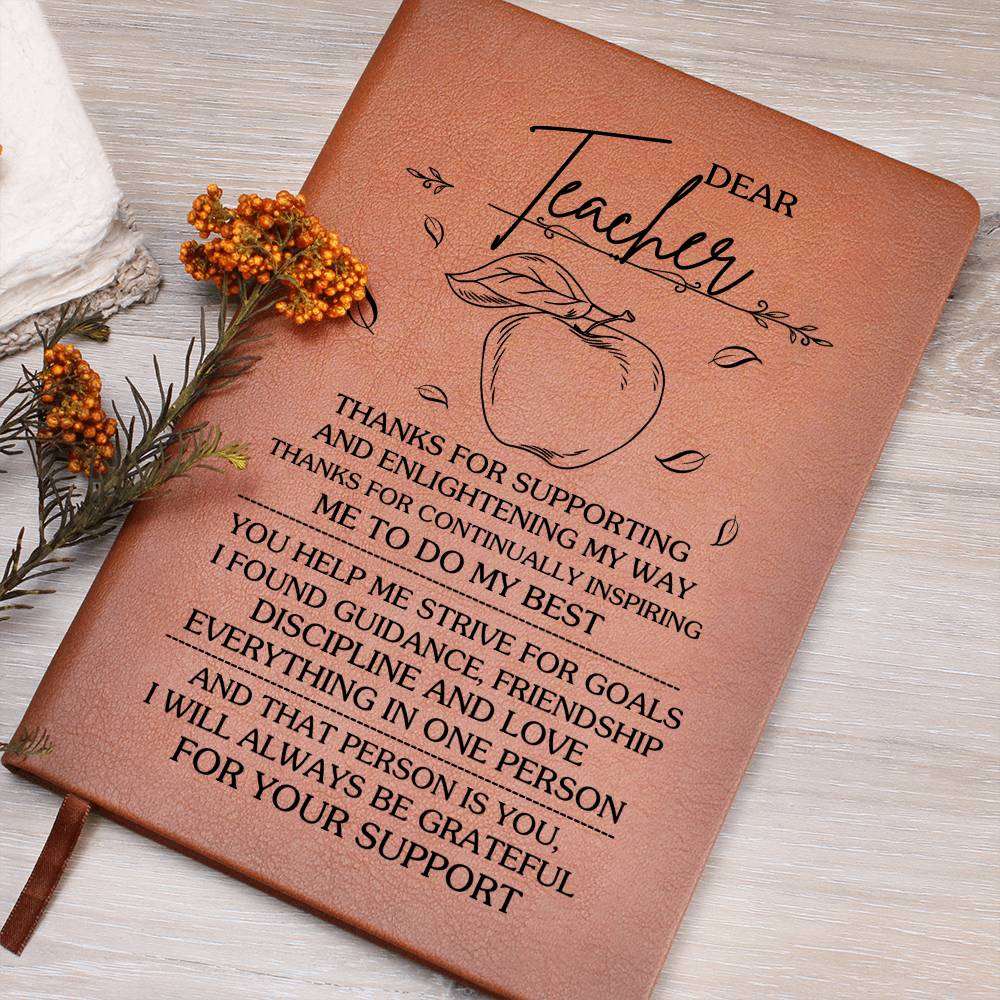 DEAR
Teacher
THANKS FOR SUPPORTING
AND ENLIGHTENING MY WAY
THANKS FOR CONTINUALLY INSPIRING
ME TO DO MY BEST
YOU HELP ME STRIVE FOR GOALS
I FOUND GUIDANCE, FRIENDSHIP
DISCIPLINE AND LOVE
EVERYTHING IN ONE PERSON
AND THAT PERSON IS YOU,
I WILL ALWAYS BE GRATEFUL
FOR YOUR SUPPORT